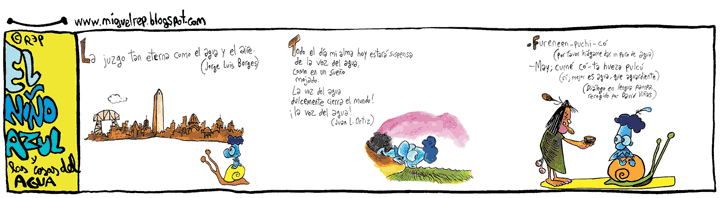 www.miguelrep.blogspot.com
© REP
EL
NIÑO
AZUL
y
las cosas del
AGUA
La juzgo tan eterna como el agua y el aire.
(Jorge Luis Borges)
Todo el día mi alma hoy estará suspensa
de la voz del agua,
como en un sueño
mojado.
La voz del agua
dulcemente cierra el mundo!
¡la voz del agua!
(Juan L. Ortiz)
-Fureneen-puchi-có
(Por favor hágame dar un poco de agua)
-May; cumé có-ta hueza pulcú
(Sí; mejor es agua, que aguardiente)
(Diálogo en lengua pampa,
recogido por David Viñas)